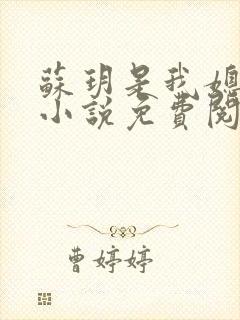 蘇玥是我媽
小說免費閱
曹婷婷